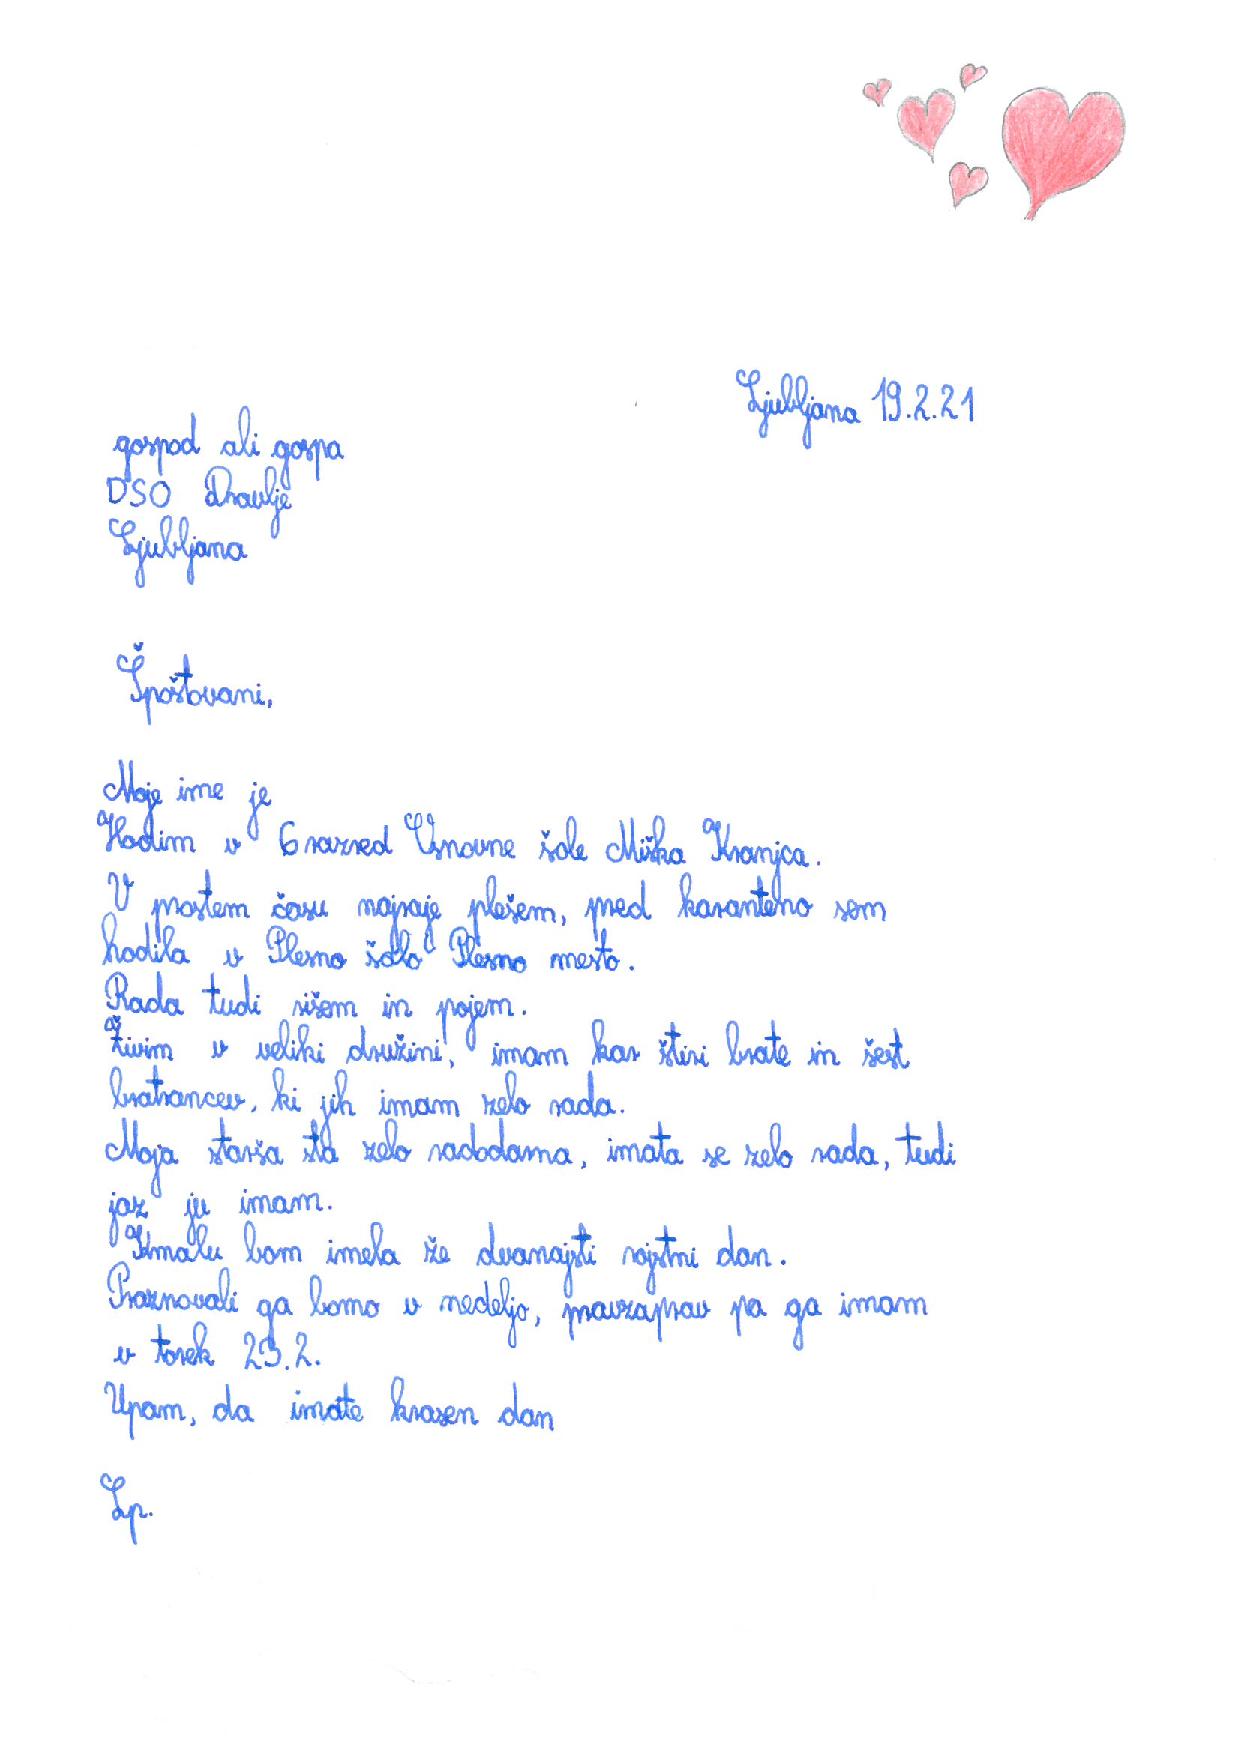 Ljubljana 19.2.21
gospod ali gospa
DSO Dravlje
Ljubljana
Špoštovani,
Moje ime je
Hodim v 6 razred Osnovne šole Miška Kranjca.
V prostem času najraje plešem, pred karanteno sem
hodila v Plesno šolo Plesno mesto.
Rada tudi rišem in pojem.
Živim v veliki družini, imam kar štiri brate in šest
bratrancev, ki jih imam zelo rada.
Moja starša sta zelo radodarna, imata se zelo rada, tudi
jaz ju imam.
Kmalu bom imela že dvanajsti rojstni dan.
Praznovali ga bomo v nedeljo, pravzaprav pa ga imam
v torek 23.2.
Upam, da imate krasen dan
Lp.